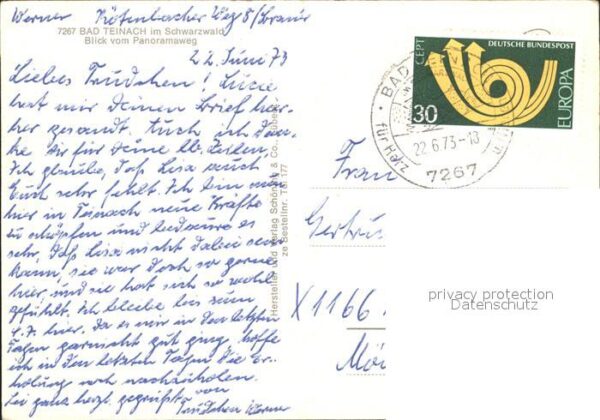 Werner Rötenbacher Weg 8 b/Braun
7267 BAD TEINACH im Schwarzwald
Blick vom Panoramaweg
22. Juni 73
Liebes Trudchen! Lucie
hat mir Deinen Brief hier-
her gesandt. Auch ich Dan-
ke Dir für Deine lb. Zeilen.
Ich glaube, daß Lisa auch
Euch sehr fehlt. Ich bin nun
hier in Teinach neue Kräfte
zu schöpfen und bedaure es
sehr, daß Lisa nicht dabei sein
kann, sie war doch so gerne
hier, und sie hat sich so wohl
gefühlt. Ich bleibe bis zum
4.7. hier. Da es mir in den letzten
Tagen garnicht gut ging, hoffe
ich in den letzten Tagen die Er-
holung noch nachzuholen.
Sei ganz herzl. gegrüßt von
Werner
Hersteller und Verlag Schöning & Co.
zu Bestellnr. Tei 177
DEUTSCHE BUNDESPOST
CEPT
EUROPA
30
BAD
22.6.73-18
7267
Frau
Gertru
X1166
Mö
privacy protection
Datenschutz